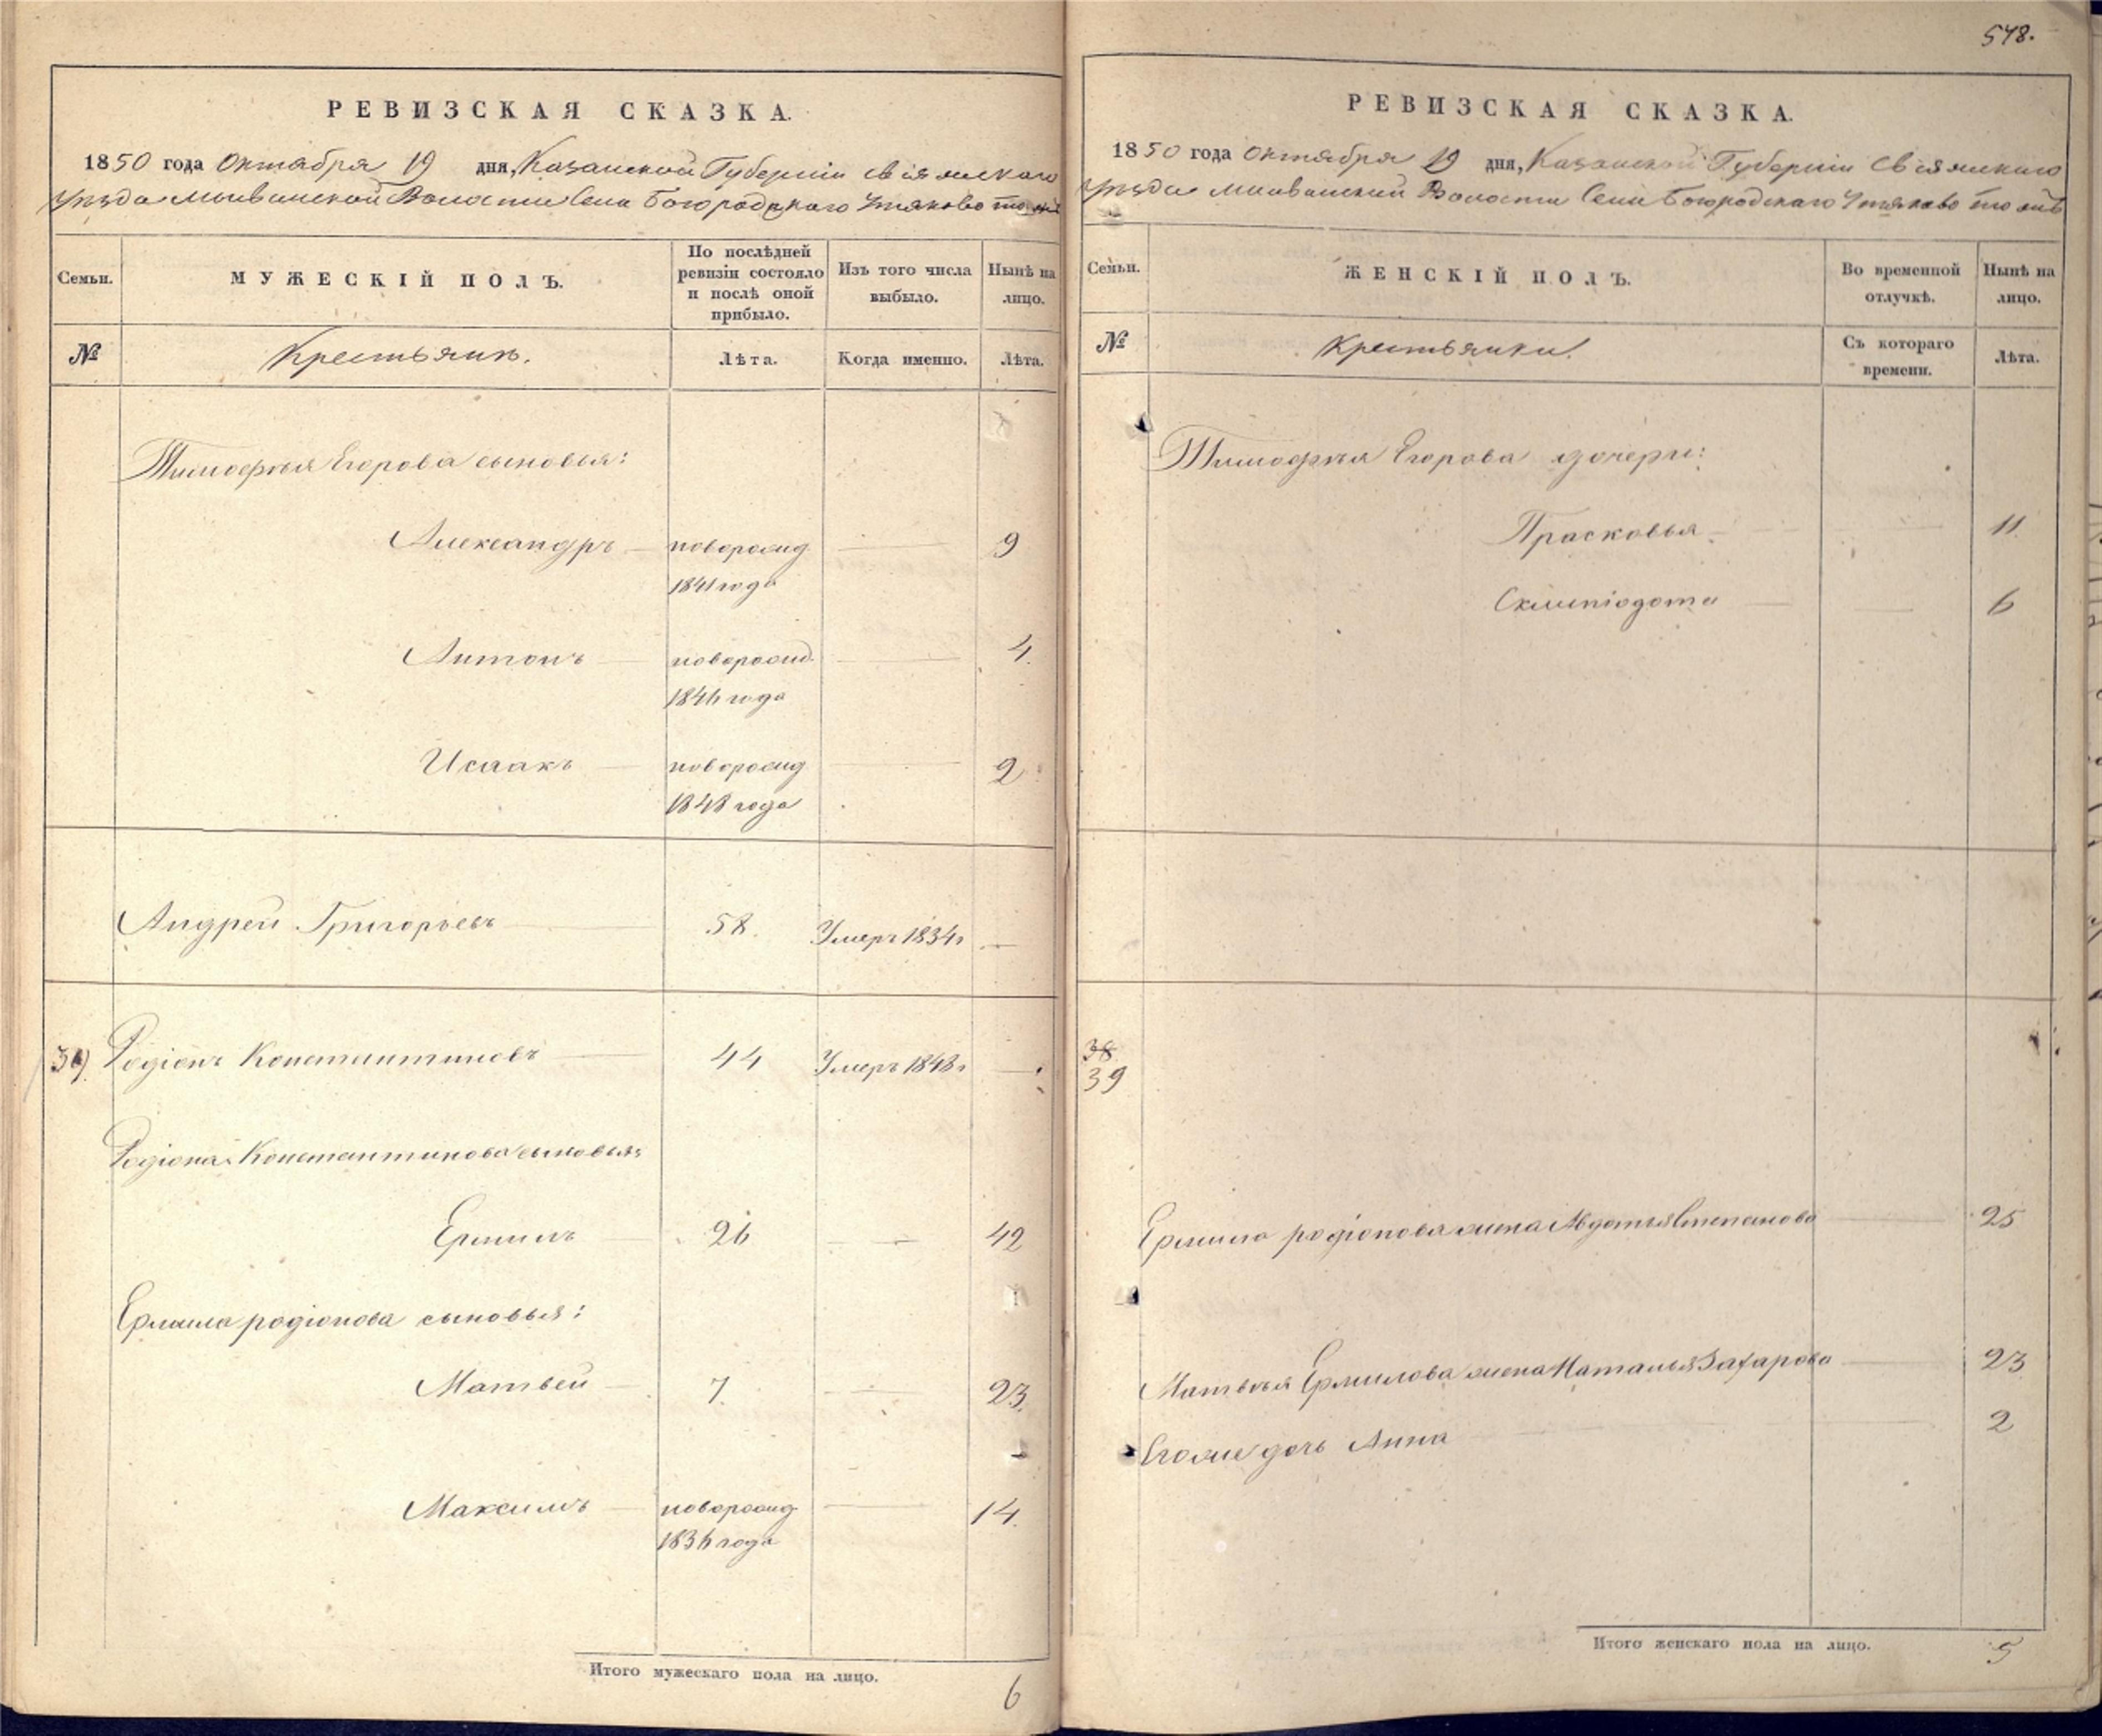 578.
РЕВИЗСКАЯ СКАЗКА.
1850 года Октября 19 дня, Казанской Губерніи Свіяжскаго
уѣзда Волости Села Богородскаго Утяково то жъ
Семьи. МУЖЕСКІЙ ПОЛЪ. По послѣдней ревизіи состояло и послѣ оной прибыло. Изъ того числа выбыло. Нынѣ на лицо.
№ Крестьянъ. Лѣта. Когда именно. Лѣта.
Тимофѣя Егорова сыновья:
Александръ новорожд 9
1841 года
Антонъ новорожд. 4.
1846 года
Исаакъ новорожд 2
1848 года
Андрей Григорьевъ 58. Умеръ 1834г —
39. Родіонъ Константиновъ 44 Умеръ 1843г —
Родіона Константинова сыновья:
Ермилъ 26 — 42
Ермила родіонова сыновья:
Матвей 7. — 23.
Максимъ новорожд 14.
1836 года
Итого мужескаго пола на лицо. 6
РЕВИЗСКАЯ СКАЗКА.
1850 года Октября 19 дня, Казанской Губерніи Свіяжскаго
уѣзда Волости Села Богородскаго Утяково то жъ
Семьи. ЖЕНСКІЙ ПОЛЪ. Во временной отлучкѣ. Нынѣ на лицо.
№ Крестьянки. Съ котораго времени. Лѣта.
Тимофѣя Егорова дочери:
Прасковья 11
6
38
39
Ермила родіонова жена Авдотья Степанова 25
Матвѣя Ермилова жена Наталья Захарова 23
Его же дочь Анна 2
Итого женскаго пола на лицо. 5